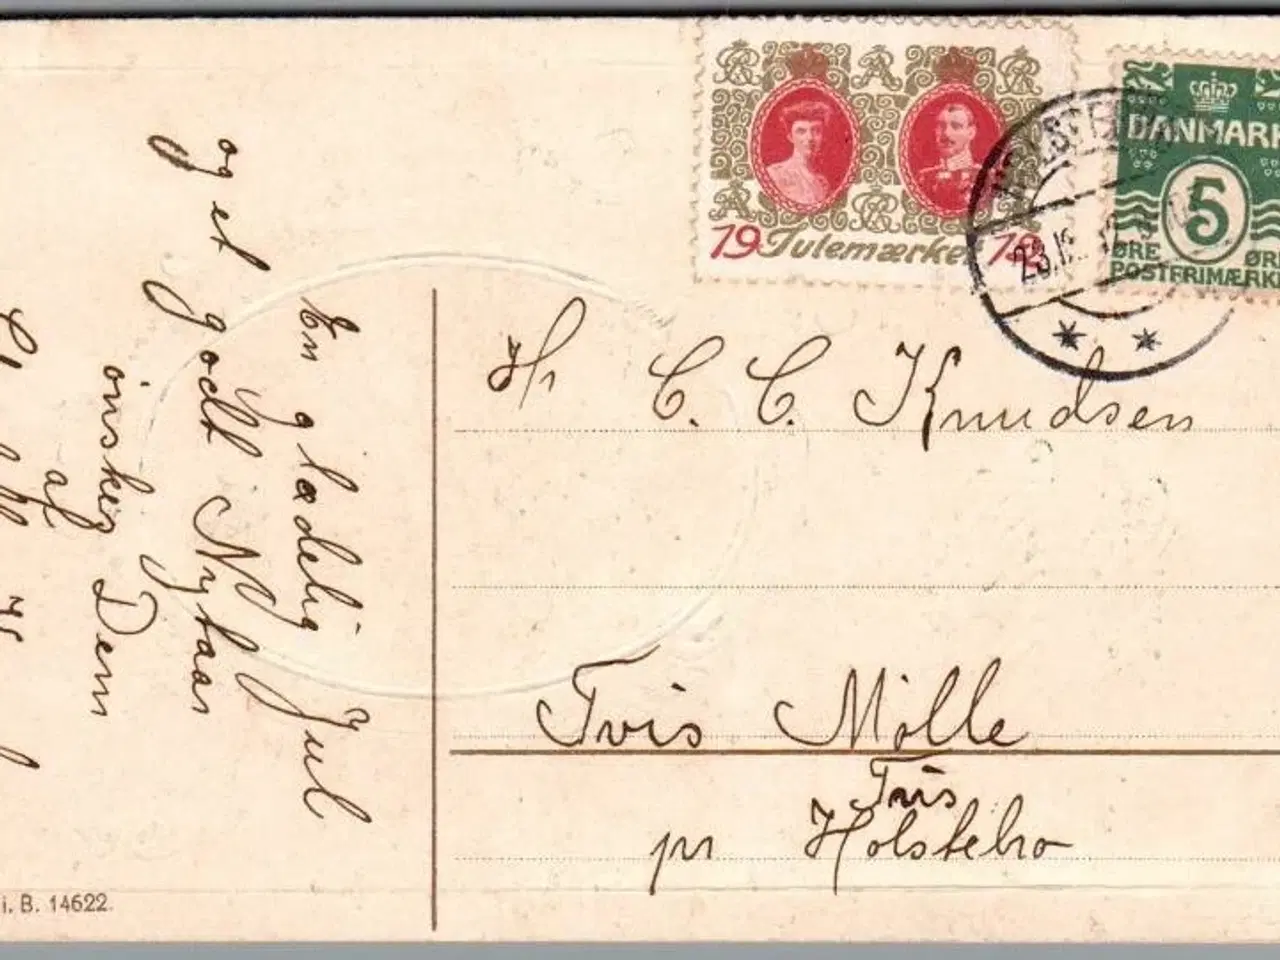 En glædelig Jul
og et godt Nytaar
ønskes Dem
af
19 Julemærke 12
DANMARK
5
ØRE ØRE
POSTFRIMÆRKE
Hr C. C. Knudsen
Tvis Mølle
Tvis
pr Holstebro
i. B. 14622.